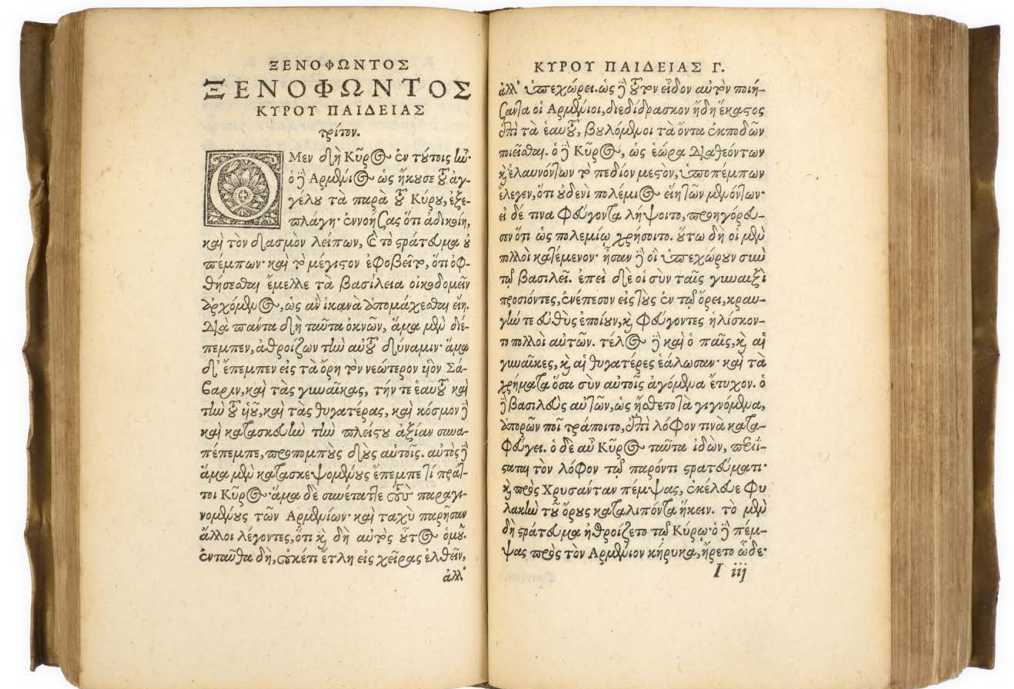 ΞΕΝΟΦΩΝΤΟΣ
ΞΕΝΟΦΩΝΤΟΣ
ΚΥΡΟΥ ΠΑΙΔΕΙΑΣ
τρίτον.
Ο Μεν δὴ Κῦρος ἐν τούτοις ἦν·
ὁ δὲ Αρμένιος ὡς ἤκουσε τοῦ ἀγ-
γέλου τὰ παρὰ τοῦ Κύρου, ἐξε-
πλάγη· ἐννοήσας ὅτι ἀδικοίη,
καὶ τὸν δασμὸν λείπων, καὶ τὸ στράτευμα οὐ
πέμπων· καὶ τὸ μέγιστον ἐφοβεῖτο, ὅτι ὀφ-
θήσεσθαι ἔμελλε τὰ βασίλεια οἰκοδομεῖν
ἀρχόμενος, ὡς ἂν ἱκανὰ ἀπομάχεσθαι εἴη.
Διὰ παντα δὴ ταῦτα ὀκνῶν, ἅμα μὲν διέ-
πεμπεν, ἀθροίζων τὴν αὑτοῦ δύναμιν· ἅμα
δ' ἔπεμπεν εἰς τὰ ὄρη τὸν νεώτερον υἱον Σά-
βαριν, καὶ τὰς γυναῖκας, τήν τε ἑαυτοῦ καὶ
τὴν τοῦ υἱοῦ, καὶ τὰς θυγατέρας, καὶ κόσμον δὲ
καὶ κατασκευὴν τὴν πλείστου ἀξίαν συνα-
πέπεμπε, προπομποὺς δοὺς αὐτοῖς. αὐτὸς δὲ
ἅμα μὲν κατασκεψομένους ἔπεμπε τί πράτ-
τοι Κῦρος· ἅμα δὲ συνέταττε τοὺς παραγι-
νομένους τῶν Αρμενίων· καὶ ταχὺ παρῆσαν
ἄλλοι λέγοντες, ὅτι καὶ δὴ αὐτὸς οὗτος ὁμοῦ.
ἐνταῦθα δὴ, οὐκέτι ἔτλη εἰς χεῖρας ἐλθεῖν,
ἀλλ'
ΚΥΡΟΥ ΠΑΙΔΕΙΑΣ Γ.
ἀλλ' ὑπεχώρει. ὡς δὲ τοῦτον εἶδον αὐτὸν ποιή-
σαντα οἱ Αρμένιοι, διεδίδρασκον ἤδη ἕκαστος
ἐπὶ τὰ ἑαυτοῦ, βουλόμενοι τὰ ὄντα ἐκποδῶν
ποιεῖσθαι. ὁ δὲ Κῦρος, ὡς ἑώρα διαθεόντων
καὶ ἐλαυνόντων τὸ πεδίον μεστὸν, ὑποπέμπων
ἔλεγεν, ὅτι οὐδενὶ πολέμιος εἴη τῶν μενόντων·
εἰ δέ τινα φεύγοντα λήψοιτο, προηγόρευ-
σεν ὅτι ὡς πολεμίῳ χρήσοιτο. οὕτω δὴ οἱ μὲν
πολλοὶ κατέμενον· ἦσαν δὲ οἳ ὑπεχώρουν σὺν
τῷ βασιλεῖ. ἐπεὶ δὲ οἱ σὺν ταῖς γυναιξὶ
προσιόντες, ἐνέπεσον εἰς τοὺς ἐν τῷ ὄρει, κραυ-
γήν τε εὐθὺς ἐποίουν, καὶ φεύγοντες ἡλίσκον-
το πολλοὶ αὐτῶν. τέλος δὲ καὶ ὁ παῖς, καὶ αἱ
γυναῖκες, καὶ αἱ θυγατέρες ἑάλωσαν· καὶ τὰ
χρήματα ὅσα σὺν αὐτοῖς ἀγόμενα ἔτυχον. ὁ
δὲ βασιλεὺς αὐτῶν, ὡς ᾔσθετο τὰ γιγνόμενα,
ἀπορῶν ποῖ τράποιτο, ἐπὶ λόφον τινὰ κατα-
φεύγει. ὁ δὲ αὖ Κῦρος ταῦτα ἰδὼν, περιί-
σταται τὸν λόφον τῷ παρόντι στρατεύματι·
καὶ πρὸς Χρυσάνταν πέμψας, ἐκέλευε φυ
λακὴν τοῦ ὄρους καταλιπόντα ἥκειν. τὸ μὲν
δὴ στράτευμα ἠθροίζετο τῷ Κύρῳ· ὁ δὲ πέμ-
ψας πρὸς τὸν Αρμένιον κήρυκα, ἤρετο ὧδε·
I iij